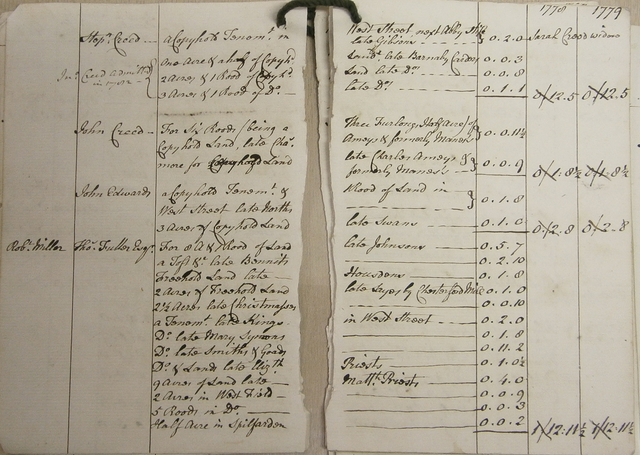 1778 1779
Step.n Creed a Copyhold Tenem.t in West Street next Abby late Gibsons 0.2.0 Sarah Creed widow
One Acre & a half of Copyh.d Land late Barnaby Creeds 0.0.3
Jn.o Creed admitted in
2 Acres & 1 Rood of Copyh.d Land late D.o 0.0.8
3 Acres & 1 Rood of D.o late D.o 0.1.1 0/12.5 0/12.5
John Creed For Six Roods (being a Three Furlong Half Acre) of
Copyhold Land, late Cha.s Ameys & formerly Maness 0.0.11½
more for Copyhold Land late Charles Ameys & formerly Maness 0.0.9 0/1:8½ 0/1:8½
John Edwards a Copyhold Tenem.t & Rood of Land in
West Street late Norths 0.1.8
3 Acres of Copyhold Land late Swans 0.1.0 0/2.8 0/2.8
Rob.t Miller Tho.s Fuller Esq.r For 8 A & 1 Rood of Land late Johnsons 0.5.7
a Toft &c late Bennitt 0.2.10
Freehold Land late Housdens 0.1.8
2 Acres of Freehold Land late Sayes by Chesterford 0.1.0
2½ Acres late Christmasses 0.0.10
a Tenem.t late Kings in West Street 0.2.0
D.o late Mary Symons 0.1.8
D.o late Smiths & Goads 0.11.2
D.o & Land late Eliz.th Priests 0.1.0½
9 Acres of Land late Matt.w Priests 0.4.0
2 Acres in West Field 0.0.9
5 Roods in D.o 0.0.3
Half Acre in Spilfarden 0.0.2 1/12:11½ 1/12:11½